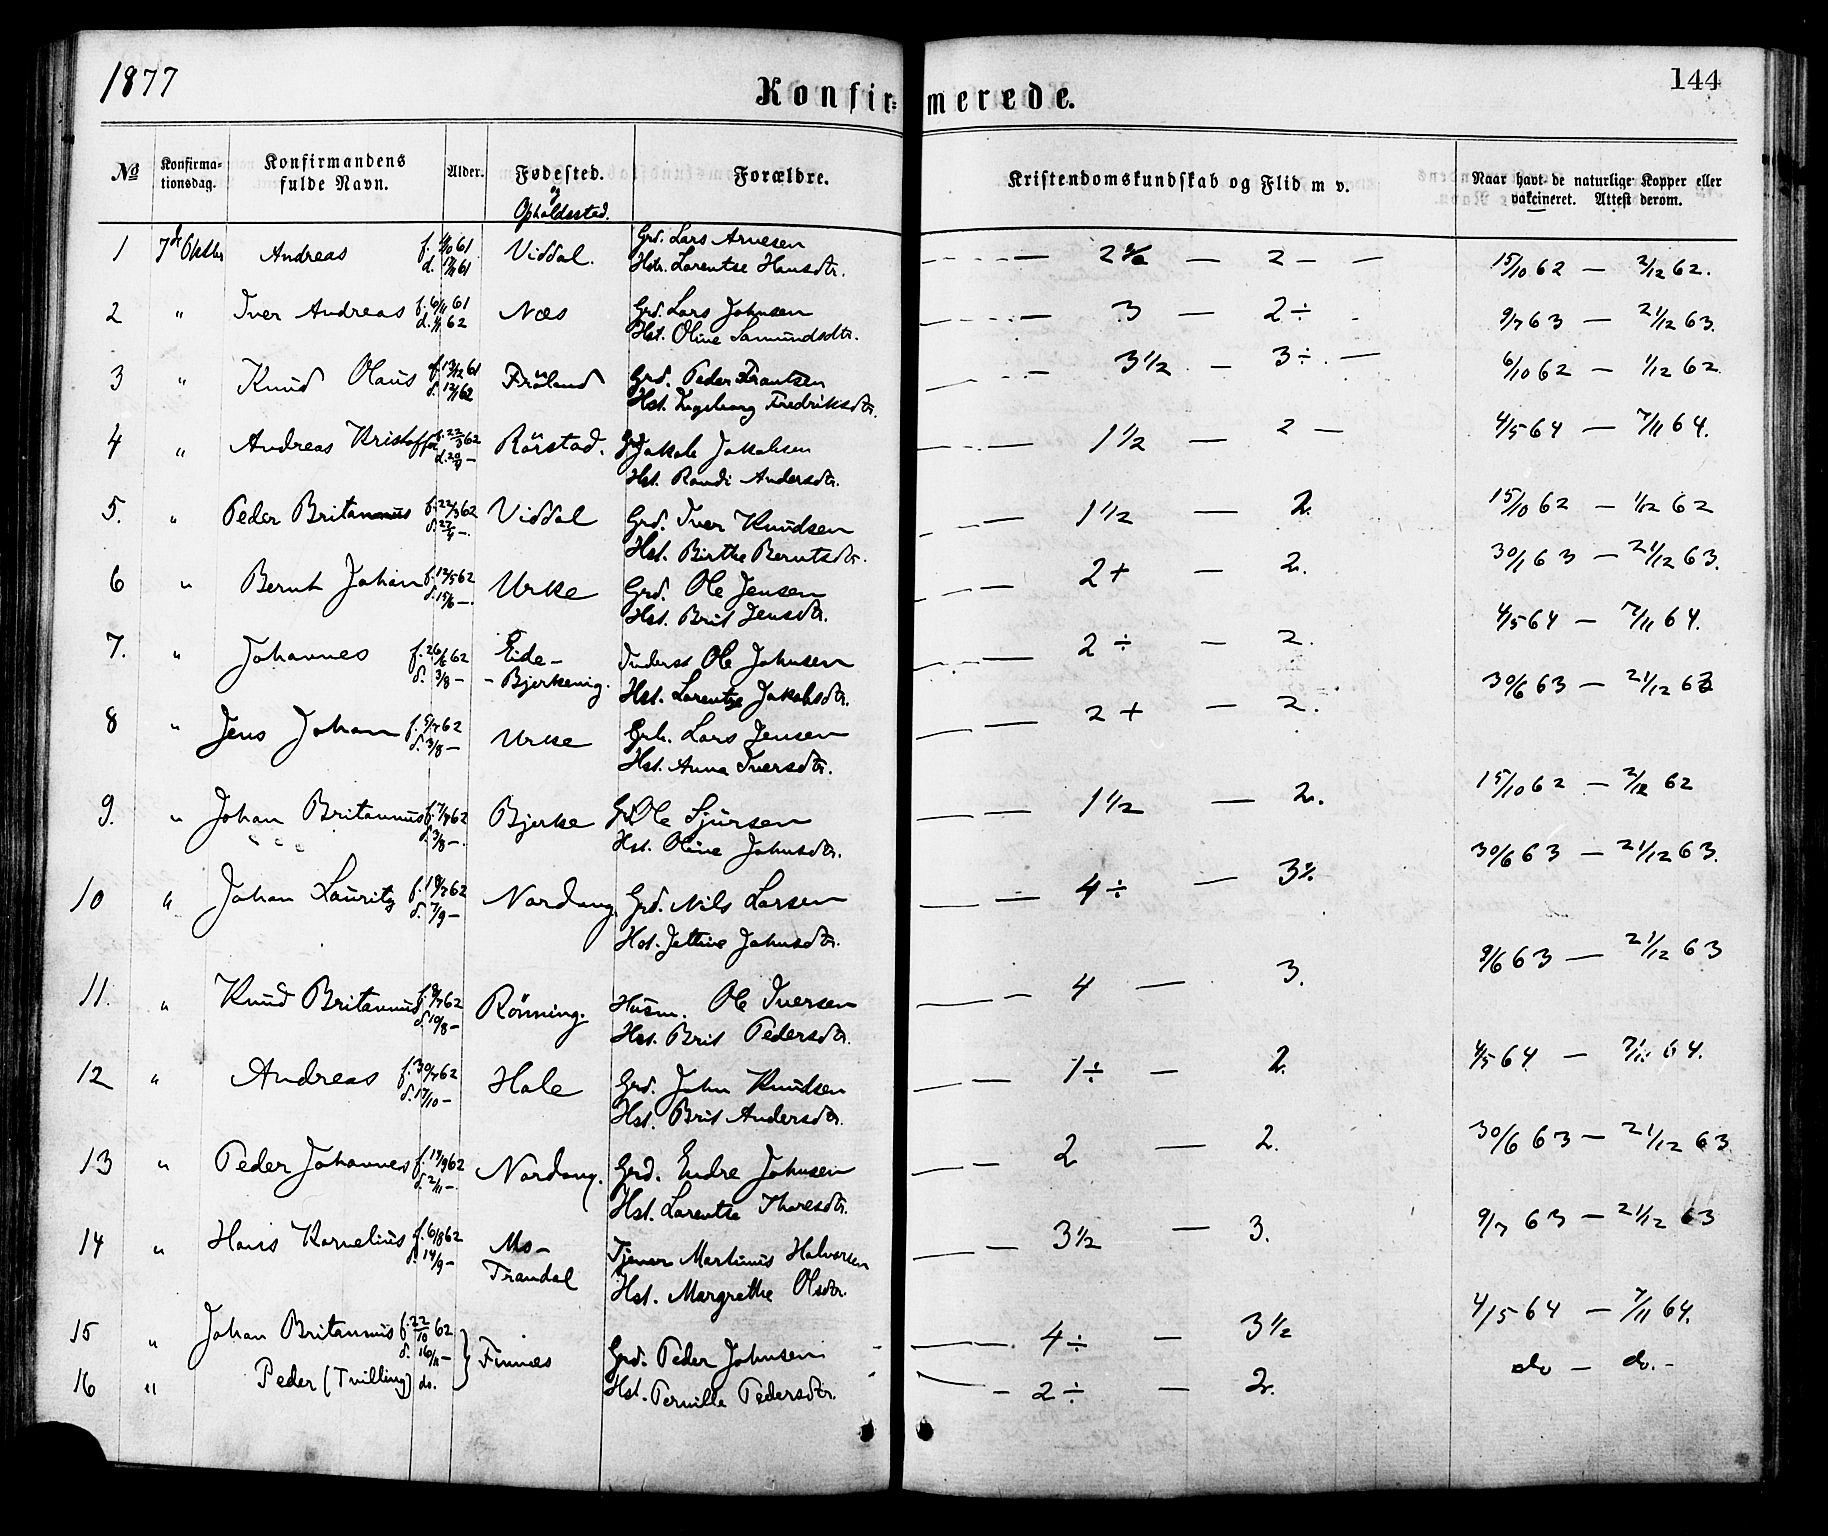 1877
Konfirmerede.
144
No
Konfirmationsdag.
Konfirmandens fulde Navn.
Alder.
Fødested.
og Opholdssted.
Forældre.
Kristendomskundskab og Flid m v.
Naar havt de naturlige Kopper eller vakcineret. Attest derom.
1 7de Oktbr Andreas Viddal. Grd. Lars Arnesen 2 — 15/10 62 — 2/12 62.
Hst. Larentse Hansdtr.
2 " Iver Andreas f. 6/11 61 Næs Grd. Lars Johnsen 3 — 2÷ 9/7 63 — 21/12 63.
Hst. Oline Samundsdtr.
3 " Knud Olaus f. 13/12 61 Fröland Grd. Peder Frantsen 3 1/2 — 3÷. — 6/10 62 — 1/12 62.
Hst. Ingeborg Fredriksdtr.
4 " Andreas Kristoffer f. 22/3 62 Rörstad. Grd. Jakob Jakobsen 1 1/2 — 2 — 4/5 64 — 7/11 64.
Hst. Randi Andersdtr.
5. " Peder Britannus f. 22/3 62 Viddal Grd. Iver Knudsen 1 1/2 — 2. 15/10 62 — 1/12 62
Hst. Birthe Berntsdtr.
6 " Bernt Johan f. 13/5 62 Urke Grd. Ole Jensen 2+ — 2. 30/1 63 — 21/12 63.
d. 15/6 — Hst. Brit Jensdtr.
7. " Johannes f. 26/6 62 Eide- Inderst Ole Johnsen 2÷ — 2. 4/5 64 — 7/11 64.
d. 3/8 — - Bjerkevig. Hst. Larentse Jakobsdtr.
8 " Jens Johan f. 5/7 62 Urke Grd. Lars Jensen 2+ — 2. 30/6 63 — 21/12 63
d. 3/8 — Hst. Anna Iversdtr.
9. " Johan Britannus f. 7/7 62 Bjerke Grd. Ole Sjursen 1 1/2 — 2. 15/10 62 — 2/12 62
d. 3/8 —. Hst. Oline Johnsdtr.
10 " Johan Lauritz f. 18/7 62 Nordang Grd. Nils Larsen 4÷ — 30/6 63 — 21/12 63.
d. 7/9 — Hst. Jettine Johnsdtr.
11. " Knud Britannus Rönning. Husm. Ole Iversen 4 — 3. 9/6 63 — 21/12 63
d. 10/8 — Hst. Brit Pedersdtr.
12 " Andreas f. 30/7 62 Hole Grd. John Knudsen 1÷ — 2. 4/5 64 — 7/11 64.
d. 17/10 — Hst. Brit Andersdtr.
13 " Peder Johannes f. 19/9 62 Nordang. Grd. Endre Johnsen 2 — 2. 30/6 63 — 21/12 63
d. 2/11 —. Hst. Larentse Thoresdtr.
14 " Hans Kornelius f. 6/8 62 Mo- Tjener Martinus Halvorsen 3 1/2 — 3. 9/7 63 — 21/12 63
d. 14/9 — Trandal Hst. Margrethe Olsdtr.
15 " Johan Britannus f. 22/10 62 4÷ — 3 1/2 4/5 64 — 7/11 64.
d. 16/11 — Finnæs Grd. Peder Johnsen
16 " Peder (Tvilling) do. Hst. Pernille Pedersdtr. 2÷ — 2. do — do. —